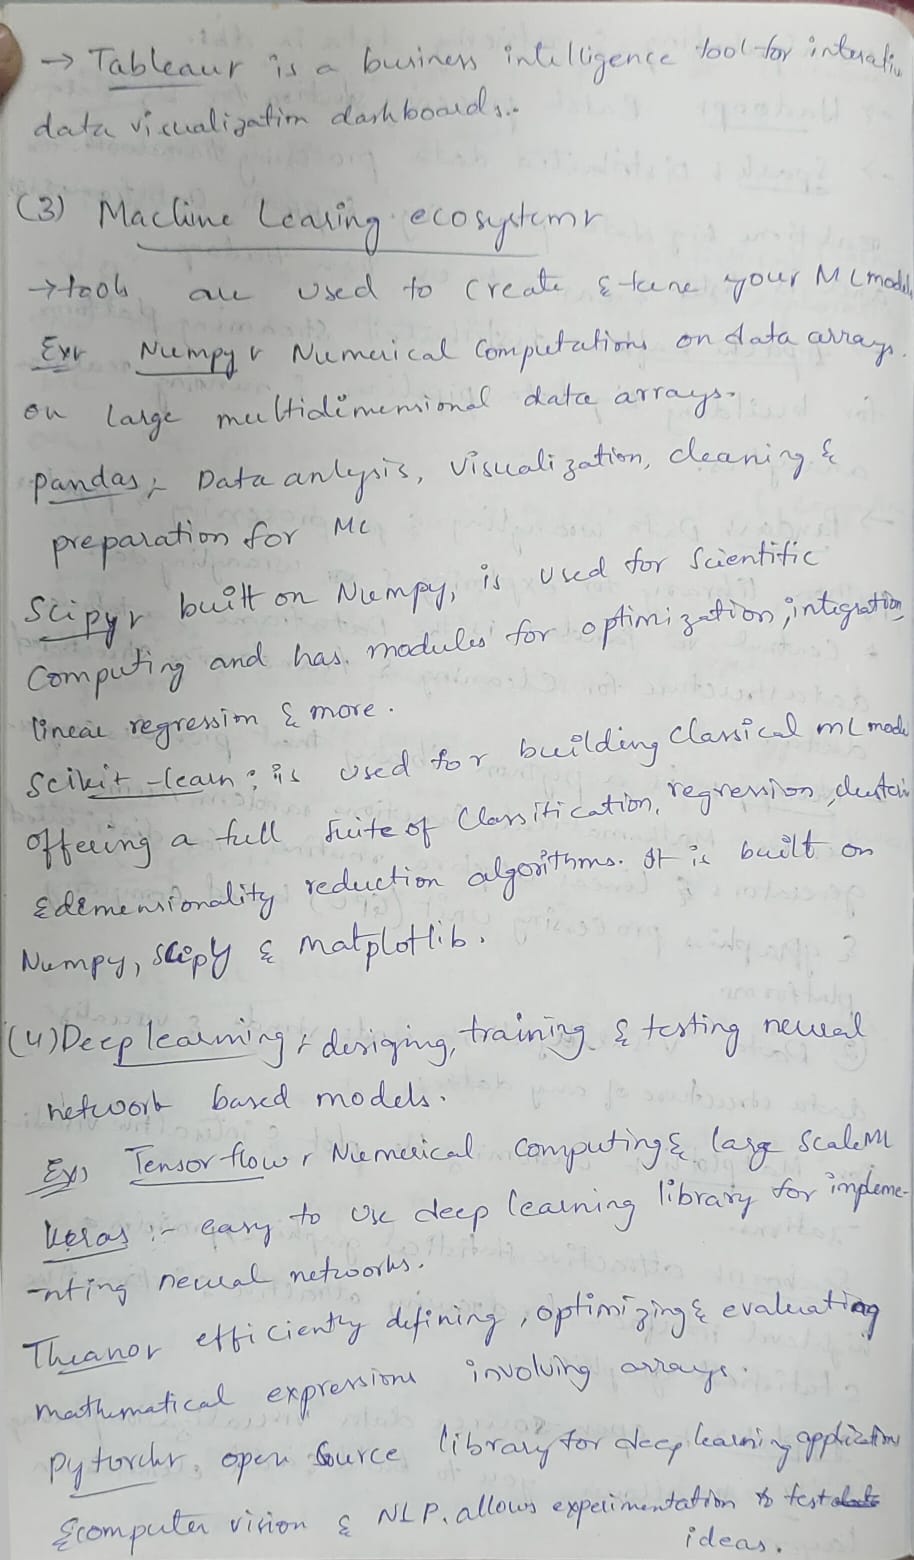 → Tableaur is a business intelligence tool for interactiv
data visualization dashboards..
(3) Machine Learing ecosystemr
→ tools are used to create & tune your ML models
Exr Numpyr Numerical Computations on data arrays.
on large multidimensional data arrays.
Pandas :- Data anlysis, visualization, cleaning &
preparation for ML
Scipyr built on Numpy, is used for Scientific
Computing and has modules for optimization, integration,
linear regression & more.
Scikit-learn : is used for building Classical ML mode
offering a full suite of Classification, regression, clusteri
& dimensionality reduction algorithms. It is built on
Numpy, Scipy & Matplotlib.
(4) Deep learning :- desiging, training & testing neural
network based models.
Exr Tensor flowr Numerical Computing & large Scale ML
Keras :- easy to use deep learning library for impleme-
-nting neural networks.
Theanor efficiently defining, optimizing & evaluating
mathematical expressions involving arrays.
Pytorchr, open source library for deep learning application
& computer vision & NLP. allows experimentation to test
ideas.